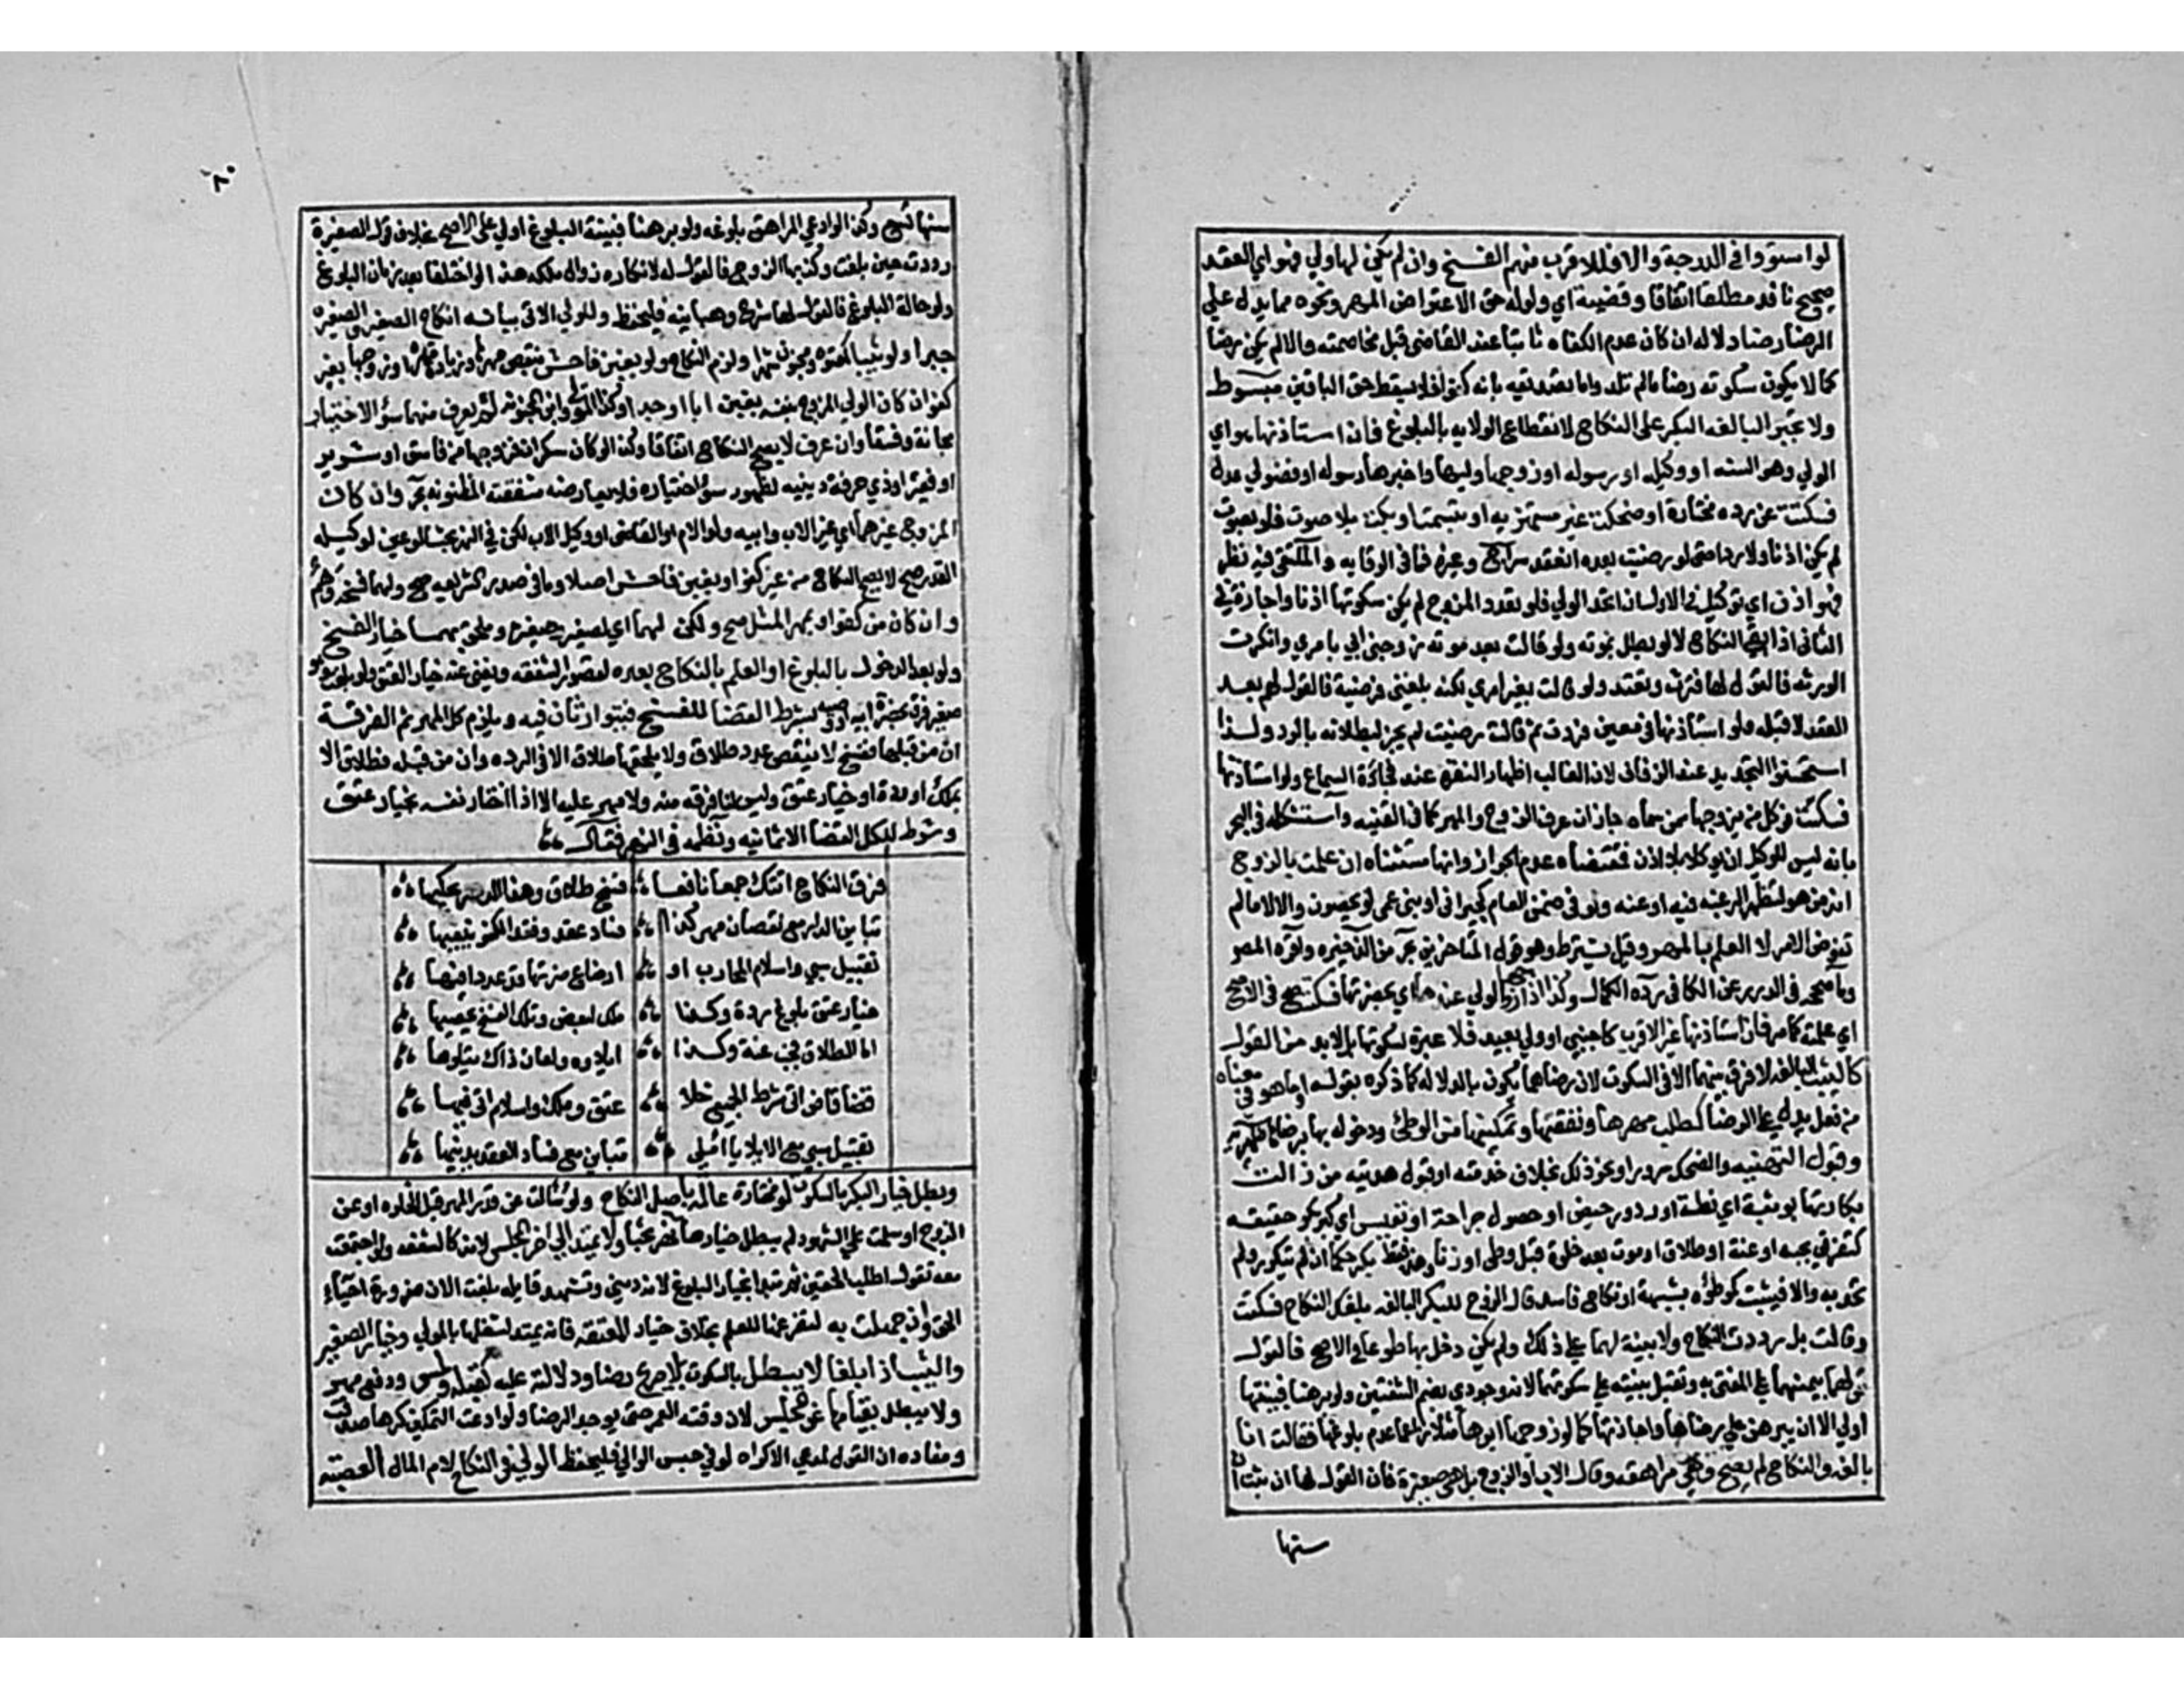 لو استووا في الدرجة والا فللاقرب منهم الفسخ وان لم يكن لها ولي فهو اي العقد
صحيح نافذ مطلقا اتفاقا وقبضه اي ولو له حق الاعتراض المهر ونحوه مما يدل علي
الرضا رضا دلالة ان كان عدم الكفاه ثابتا عند القاضي قبل مخاصمته والا لم يكن رضا
كما لا يكون سكوته رضا ما لم تلد واما تصديقه بانه كفؤ فلا يسقط حق الباقين مبسوط
ولا تجبر البالغه البكر علي النكاح لانقطاع الولايه بالبلوغ فان استاذنها هو اي
الولي وهو السنه او وكيله او رسوله او زوجها وليها واخبرها رسوله او فضولي عدل
فسكتت عن رده مختارة او ضحكت غير مستهزيه او تبسمت او بكت بلا صوت فلو بصوت
لم يكن اذنا ولا ردا حتى لو رضيت بعده انعقد سراج وغيره فما في الوقايه والملتقى فيه نظر
فهو اذن اي توكيل في الاول ان اتحد الولي فلو تعدد المزوج لم يكن سكوتها اذنا واجازة في
الثاني اذا بقي النكاح لا لو بطل بموته ولو قالت بعد موته زوجني ابي بامري وانكرت
الورثه فالقول لها فترثه وتعتد ولو قالت بغير امري لكنه بلغني فرضيت فالقول لهم بعد
العقد لا قبله ولو استاذنها في معين فردت ثم قالت رضيت لم يجز لبطلانه بالرد ولذا
استحسنوا التجديد عند الزفاف لان الغالب اظهار النفره عند فجاءة السماع ولو استاذنها
فسكتت فوكل من يزوجها ممن سماه جاز ان عرف الزوج والمهر كما في القنيه واستشكله في البحر
بانه ليس للوكيل ان يوكل بلا اذن فمقتضاه عدم الجواز وانها مستثناه ان علمت بالزوج
انه من هو لتظهر الرغبه فيه او عنه ولو في ضمن العام كجيراني او بني عمي لو يحصون والا لا ما لم
تفوض الامر لا العلم بالمهر وقيل يشترط وهو قول المتاخرين بحر عن الذخيره واقره المص
وما صححه في الدرر عن الكافي رده الكمال وكذا اذا زوجها الولي عندها اي بحضرتها فسكتت صح في الاصح
اي علمته كما مر فان استاذنها غير الاقرب كاجنبي او ولي بعيد فلا عبرة لسكوتها بل لا بد من القول
كالثيب البالغه لا فرق بينهما الا في السكوت لان رضاهما يكون بالدلاله كما ذكره بقوله او ما هو في معناه
من فعل يدل علي الرضا كطلب مهرها ونفقتها وتمكينها من الوطئ ودخوله بها برضاها ظهيريه
وقبول التهنيه والضحك سرورا ونحو ذلك بخلاف خدمته او قبول هديته من زالت
بكارتها بوثبة اي نطة او درور حيض او حصول جراحة او تعنيس اي كبر بكر حقيقه
كتفريق بجب او عنة او طلاق او موت بعد خلوة قبل وطئ او زنا وهذه فقط بكر حكما ان لم يتكرر ولم
تحد به والا فثيب كموطؤه بشبهة او نكاح فاسد قال الزوج للبكر البالغه بلغك النكاح فسكت
وقالت بل رددت النكاح ولا بينة لهما علي ذلك ولم يكن دخل بها طوعا في الاصح فالقول
قولها بيمينها علي المفتى به وتقبل بينته علي سكوتها لانه وجودي بضم الشفتين ولو برهنا فبينتها
اولي الا ان يبرهن علي رضاها او اجازتها كما لو زوجها ابوها مثلا زاعما عدم بلوغها فقالت انا
بالغه والنكاح لم يصح وهي مراهقه وقال الاب او الزوج بل هي صغيرة فان القول لها ان ثبت ان
سنها
٨٠
سنها تسع وكذا لو ادعي المراهق بلوغه ولو برهنا فبينة البلوغ اولي علي الاصح بخلاف قول الصغيرة
رددت حين بلغت وكذبها الزوج فالقول له لانكاره زوال ملكه هذا لو اختلفا بعد زمان البلوغ
ولو حالة البلوغ فالقول لها شرح وهبانيه فليحفظ وللولي الاتي بيانه انكاح الصغير والصغيره
جبرا ولو ثيبا كمعتوه ومجنون شهرا ولزم النكاح ولو بغبن فاحش بنقص مهرها وزيادة مهره او زوجها بغير
كفؤ ان كان الولي المزوج بنفسه بغبن ابا او جدا وكذا المولي وابن المجنونه لم يعرف منهما سؤ الاختيار
مجانة وفسقا وان عرف لا يصح النكاح اتفاقا وكذا لو كان سكران فزوجها من فاسق او شرير
او فقير او ذي حرفة دينيه لظهور سؤ اختياره فلا يعارضه شفقته المظنونه بحر وان كان
المزوج غيرهما اي غير الاب وابيه ولو الام او القاضي او وكيل الاب لكن في النهر بحثا لو عين لوكيله
القدر صح لا يصح النكاح من غير كفؤ او بغبن فاحش اصلا وما في صدر الشريعه صح ولهما فسخه وهم
وان كان من كفؤ او بمهر المثل صح ولكن لهما اي لصغير وصغيره وملحق بهما خيار الفسخ
ولو بعد الدخول بالبلوغ او العلم بالنكاح بعده لقصور الشفقه ويغني عنه خيار العتق ولو بلغت وهو
صغير فرق بحضرة ابيه او وصيه بشرط القضا للفسخ فيتوارثان فيه ويلزم كل المهر ثم الفرقة
ان من قبلها فسخ لا ينقص عدد طلاق ولا يلحقها طلاق الا في الرده وان من قبله فطلاق الا
بملك او ردة او خيار عتق وليس لنا فرقه منه ولا مهر عليه الا اذا اختار نفسه بخيار عتق
وشرط للكل القضا الا ثمانيه ونظمه في النهر فقال
فرق النكاح اتتك جمعا نافعا فسخ طلاق وهذا الدر يحكيها
تباين الدار مع نقصان مهر كذا فساد عقد وفقد الكفؤ ينعيها
تقبيل سبي واسلام المحارب او ارضاع ضرتها قد عد ذا فيها
خيار عتق بلوغ ردة وكذا ملك لبعض وتلك الفسخ يحصيها
اما الطلاق فجب عنة وكذا ايلاوه ولعان ذاك يتلوها
قضا قاض اتى شرط الجميع خلا عتق وملك واسلام اتى فيها
تقبيل سبي مع الايلا يا املي تباين مع فساد العقد يدنيها
وبطل خيار البكر بالسكوت لو مختارة عالمة باصل النكاح ولو سالت عن قدر المهر قبل الخلوه او عن
الزوج او سلمت علي الشهود لم يبطل خيارها نهر بحثا ولا يمتد الي اخر المجلس لانه كالشفعه ولو اجتمعت
معه تقول اطلب الحقين ثم تبدا بخيار البلوغ لانه ديني وتشهد قايله بلغت الان ضرورة احياء
الحق وان جهلت به لتفرغها للعلم بخلاف خيار المعتقه فانه يمتد لشغلها بالمولي وخيار الصغير
والثيب اذا بلغا لا يبطل بالسكوت بلا صريح رضا او دلالة عليه كقبله ولمس ودفع مهر
ولا يبطل بقيامها عن المجلس لان وقته العمر حتى يوجد الرضا ولو ادعت التمكين كرها صدقت
ومفاده ان القول لمدعي الاكراه لو في حبس الوالي فليحفظ الولي في النكاح لا م المال العصبة